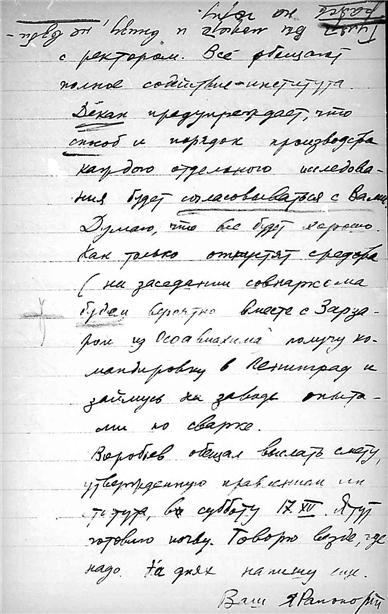 с ректором. Все обещают
полное содействие института.
Декан предупреждает, что
способ и порядок производства
каждого отдельного исследова-
ния будет согласовываться с Вами.
Думаю, что все будет хорошо.
Как только отпустят средства
(на заседании совнаркома
будем вероятно вместе с Зарза-
ром из Осоавиахима) получу ко-
мандировку в Ленинград и
займусь на заводе опыта-
ми по сварке.
Воробьев обещал выслать смету,
утвержденную правлением ин-
ститута, в субботу 17 XII. Я тут
готовлю почву. Говорю везде, где
надо. На днях напишу еще.
Ваш Я Рапопорт